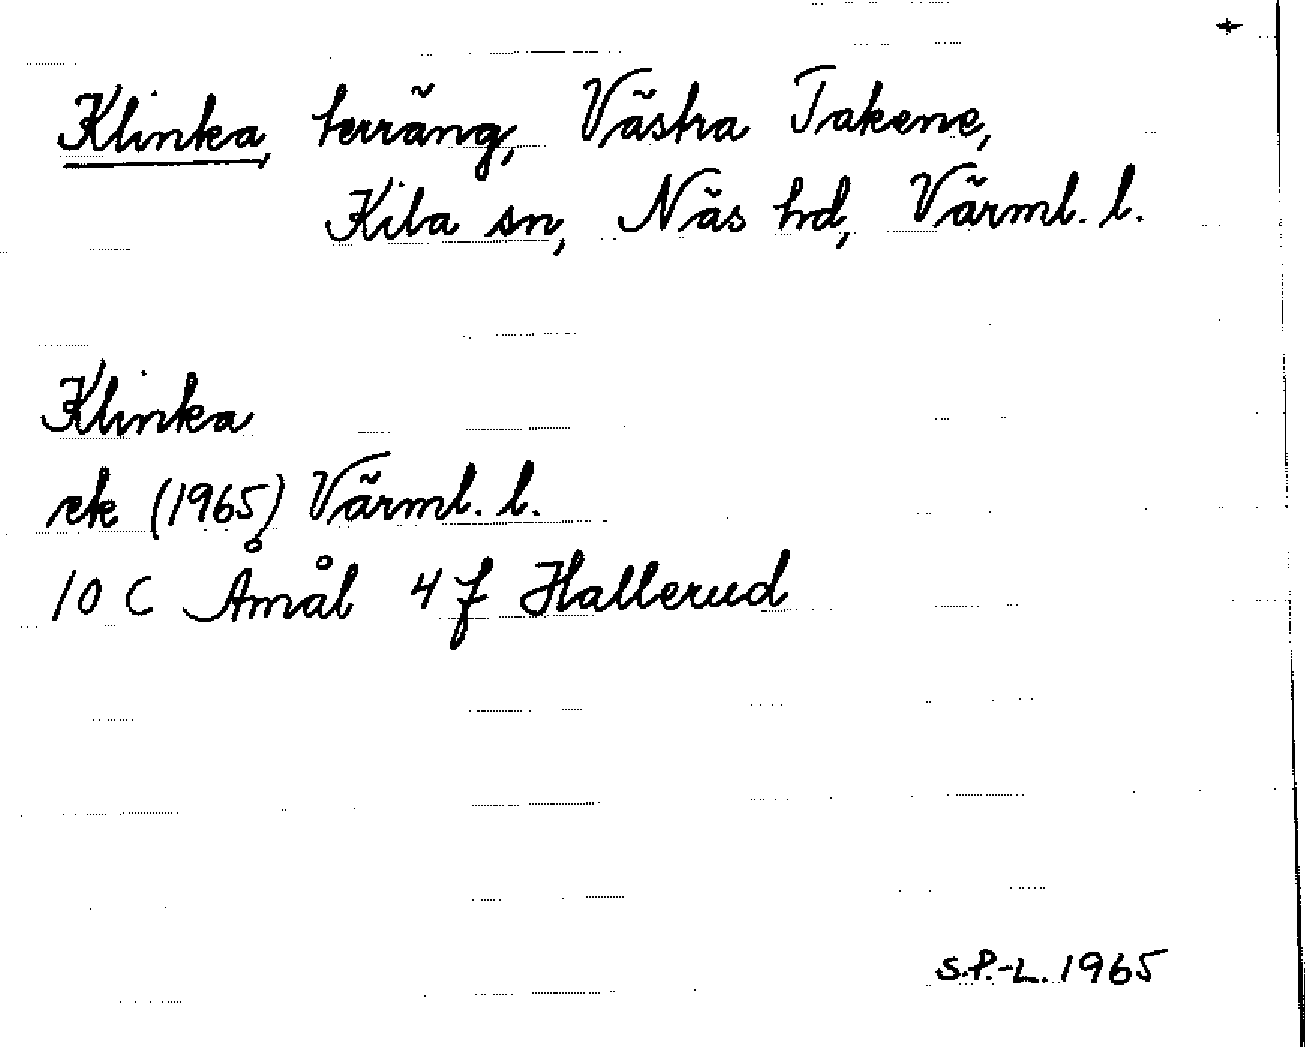 Klinka, terräng, Västra Takene,
Kila sn, Näs hd, Värml. l.
Klinka
rek (1965) Värml. l.
10 C Åmål 4 f Hallerud
S.P.-L. 1965